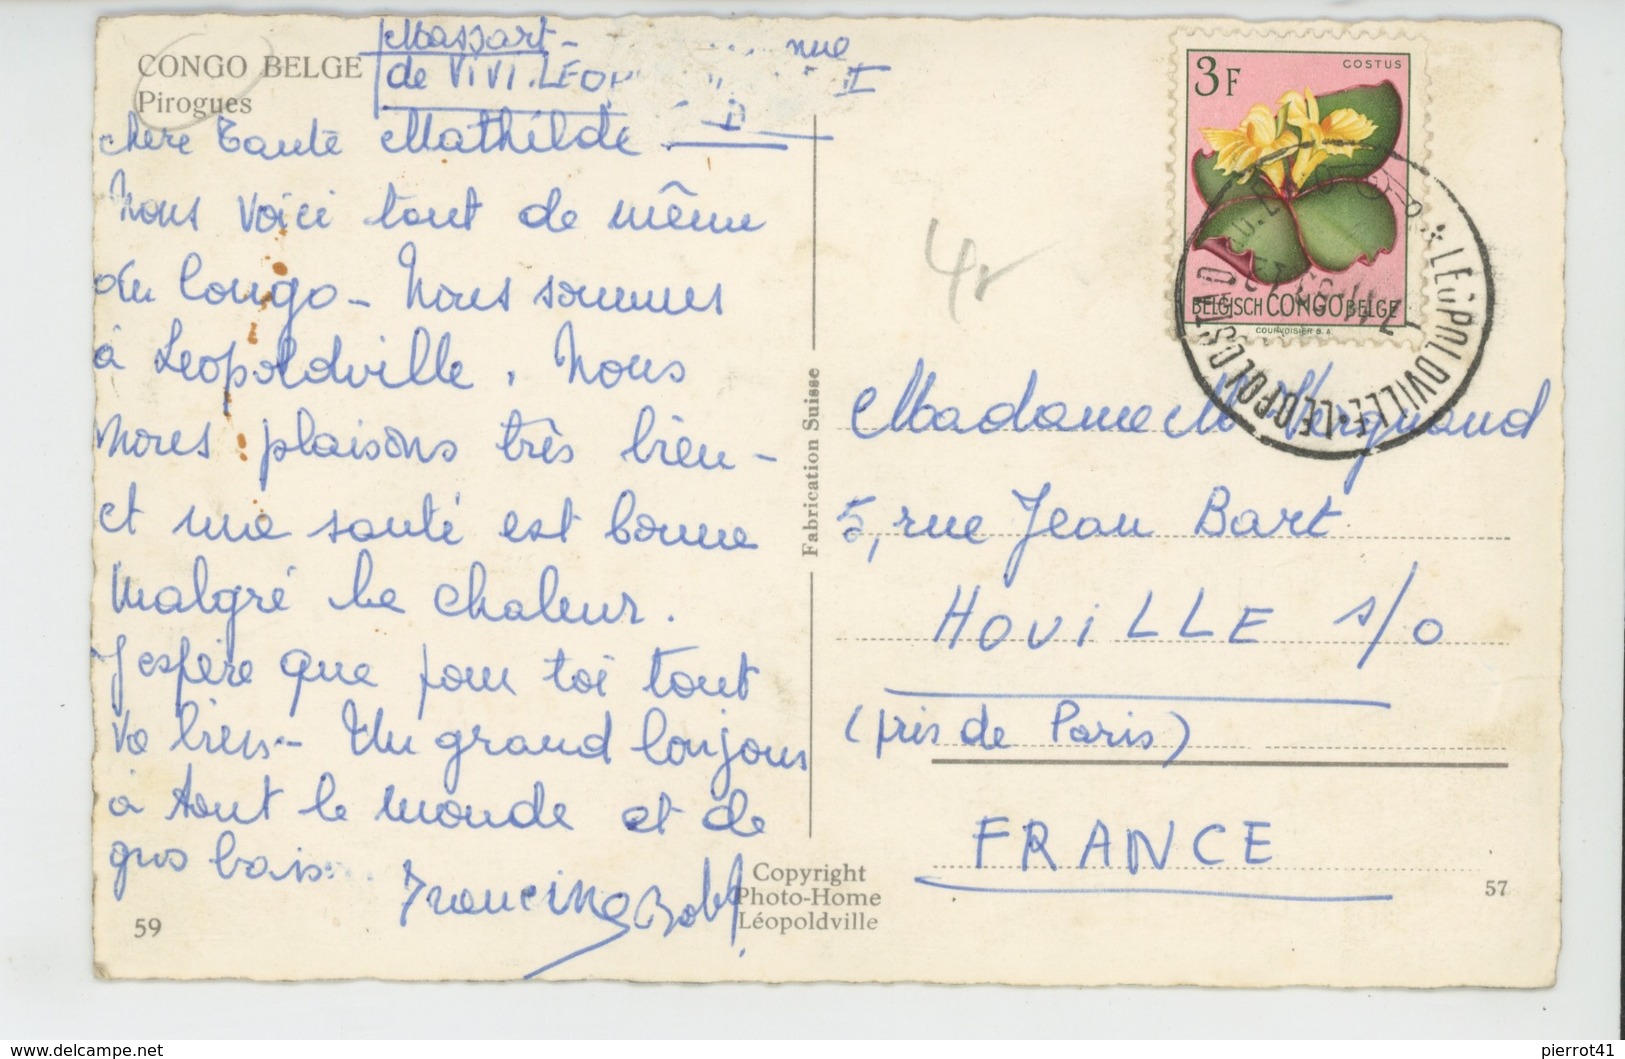 CONGO BELGE
Pirogues
Massart -
de ViVi.LEOP
chère Tante Mathilde.
Nous voici tout de même
du Congo - Nous sommes
à Leopoldville. Nous
nous plaisons très bien -
et une santé est bonne
malgré le chaleur.
J'espère que pour toi tout
va bien - Un grand bonjour
à tout le monde et de
gros bais.
Francine Bob
59
Fabrication Suisse
Copyright
Photo-Home
Léopoldville
3F
COSTUS
BELGISCH CONGO BELGE
COURVOISIER S.A.
LEOPOLDVILLE
LEOPOLDSTAD
4r
Madame M Vergnaud
5, rue Jean Bart
HOUiLLE s/o
(près de Paris)
FRANCE
57
pierrot41